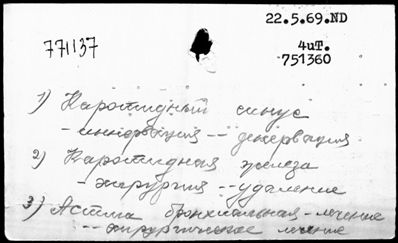 22.5.69.ND
771137
4ит.
751360
1) Каротидный синус
- иннервация -- денервация
2) Каротидная железа
- хирургия -- удаление
3) Астма бронхиальная - лечение
-- хирургическое лечение